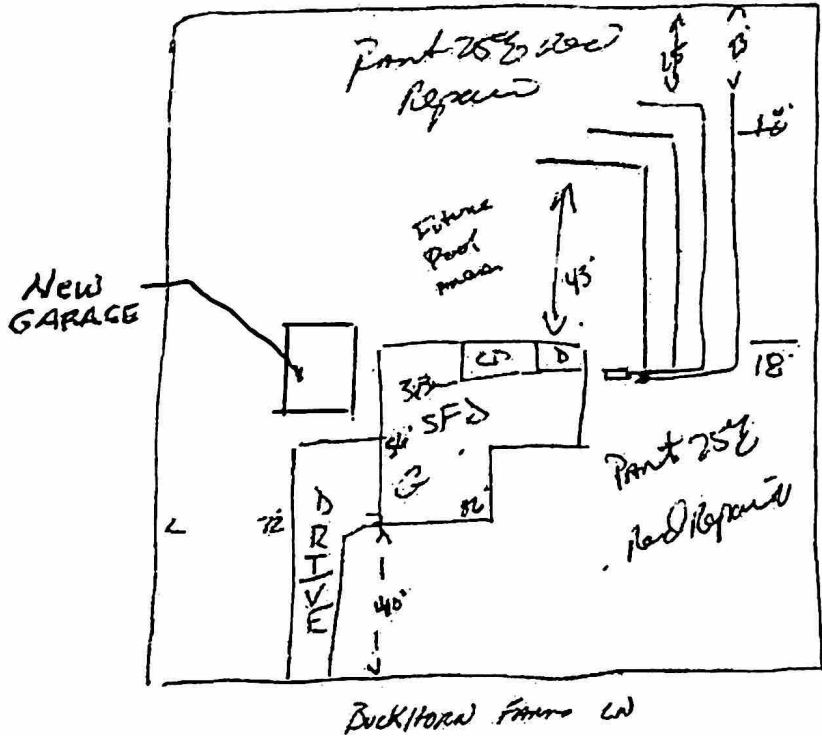 25'
13'
Part 25% Red
Repair
18'
Future
Pool
area
43'
New
GARAGE
CP
D
18'
SFD
54'
G
Part 25%
Red Repair
72'
DRIVE
40'
BUCKHORN FARMS LN